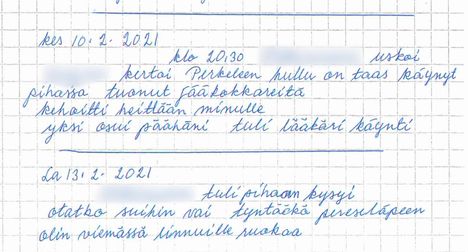 kes 10.2.2021
klo 20,30 uskoi
kertoi Perkeleen hullu on taas käynyt
pihassa tuonut jääkokkareita
kehoitti heittään minulle
yksi osui päähäni tuli lääkäri käynti
La 13.2.2021
tuli pihaan kysyi
otatko suihin vai työntääkö perseläpeen
olin viemässä linnuille ruokaa